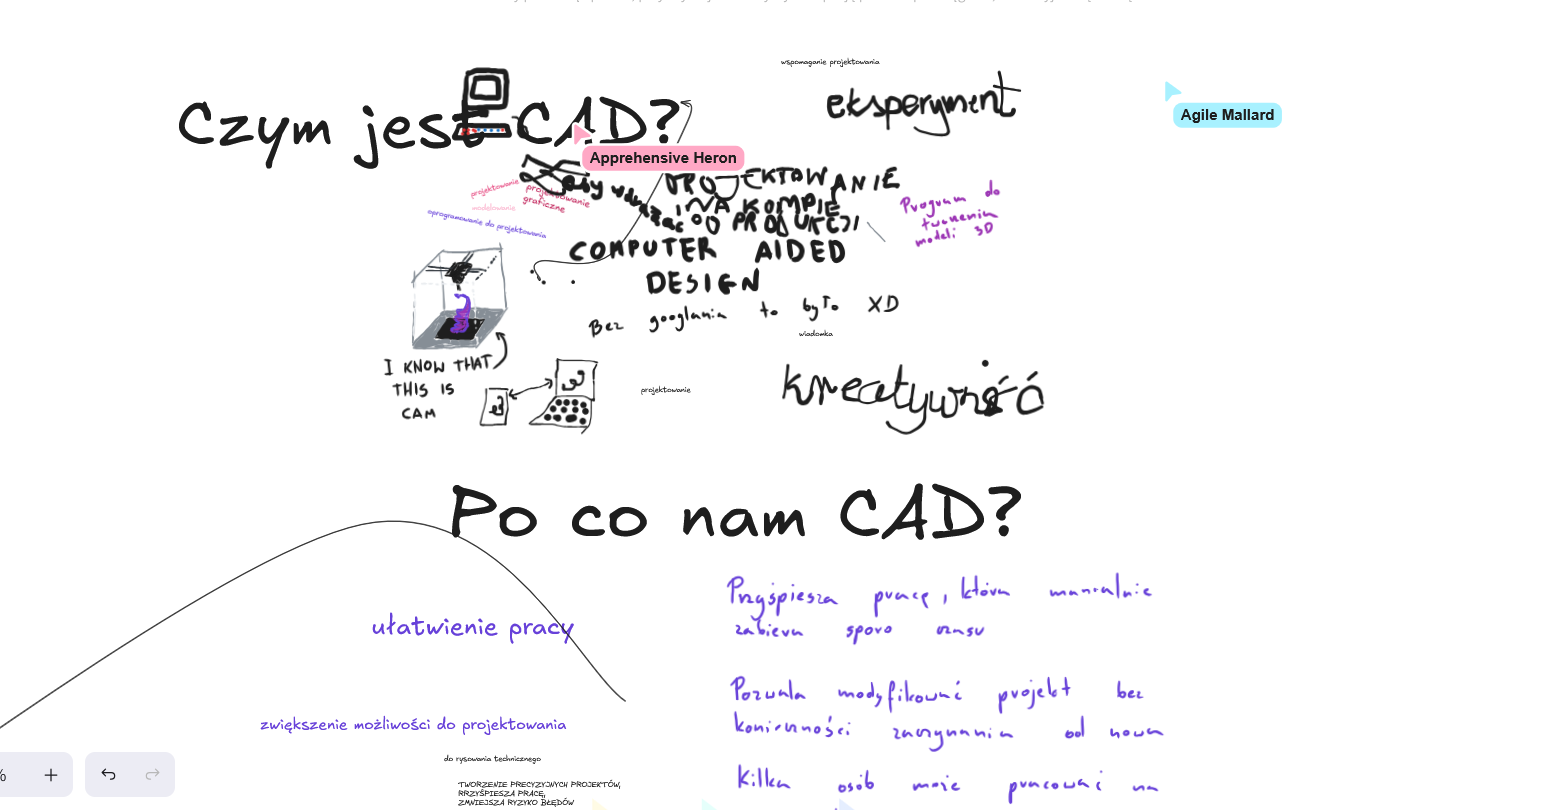 wspomaganie projektowania
eksperyment
Czym jest CAD?
Agile Mallard
Apprehensive Heron
PROJEKTOWANIE
NA KOMPIE
DO PRODUKCJI
projektowanie
modelowanie
projektowanie
graficzne
oprogramowanie do projektowania
Program do
tworzenia
modeli 3D
COMPUTER AIDED
DESIGN
Bez googlania to było XD
wiadomka
I KNOW THAT
THIS IS
CAM
projektowanie
kreatywność
Po co nam CAD?
Przyśpiesza pracę, która manualnie
zabiera sporo czasu
ułatwienie pracy
Pozwala modyfikować projekt bez
konieczności zaczynania od nowa
zwiększenie możliwości do projektowania
do rysowania technicznego
Kilka osób może pracować na
TWORZENIE PRECYZYJNYCH PROJEKTÓW,
RRZYŚPIESZA PRACĘ,
ZMNIEJSZA RYZYKO BŁĘDÓW
%